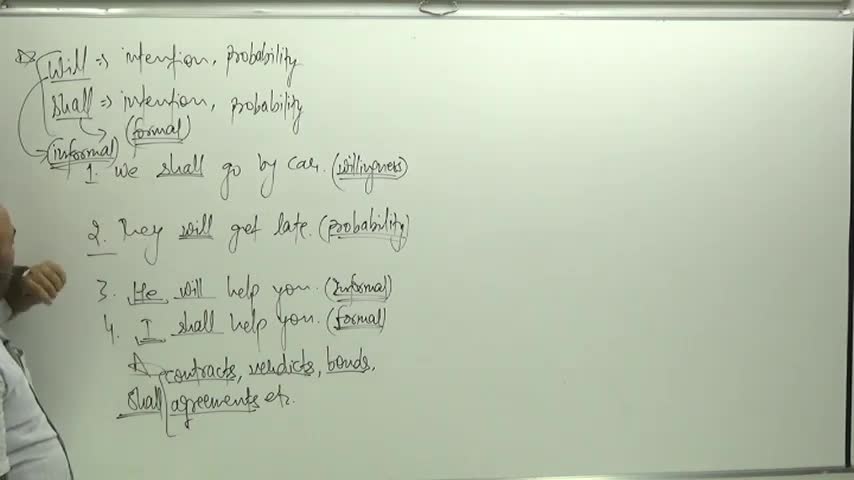 will ⇒ intention, probability
shall ⇒ intention, probability
(formal)
(informal)
1. we shall go by car. (willingness)
2. They will get late. (probability)
3. He will help you. (Informal)
4. I shall help you. (formal)
contracts, verdicts, bonds,
shall agreements etc.